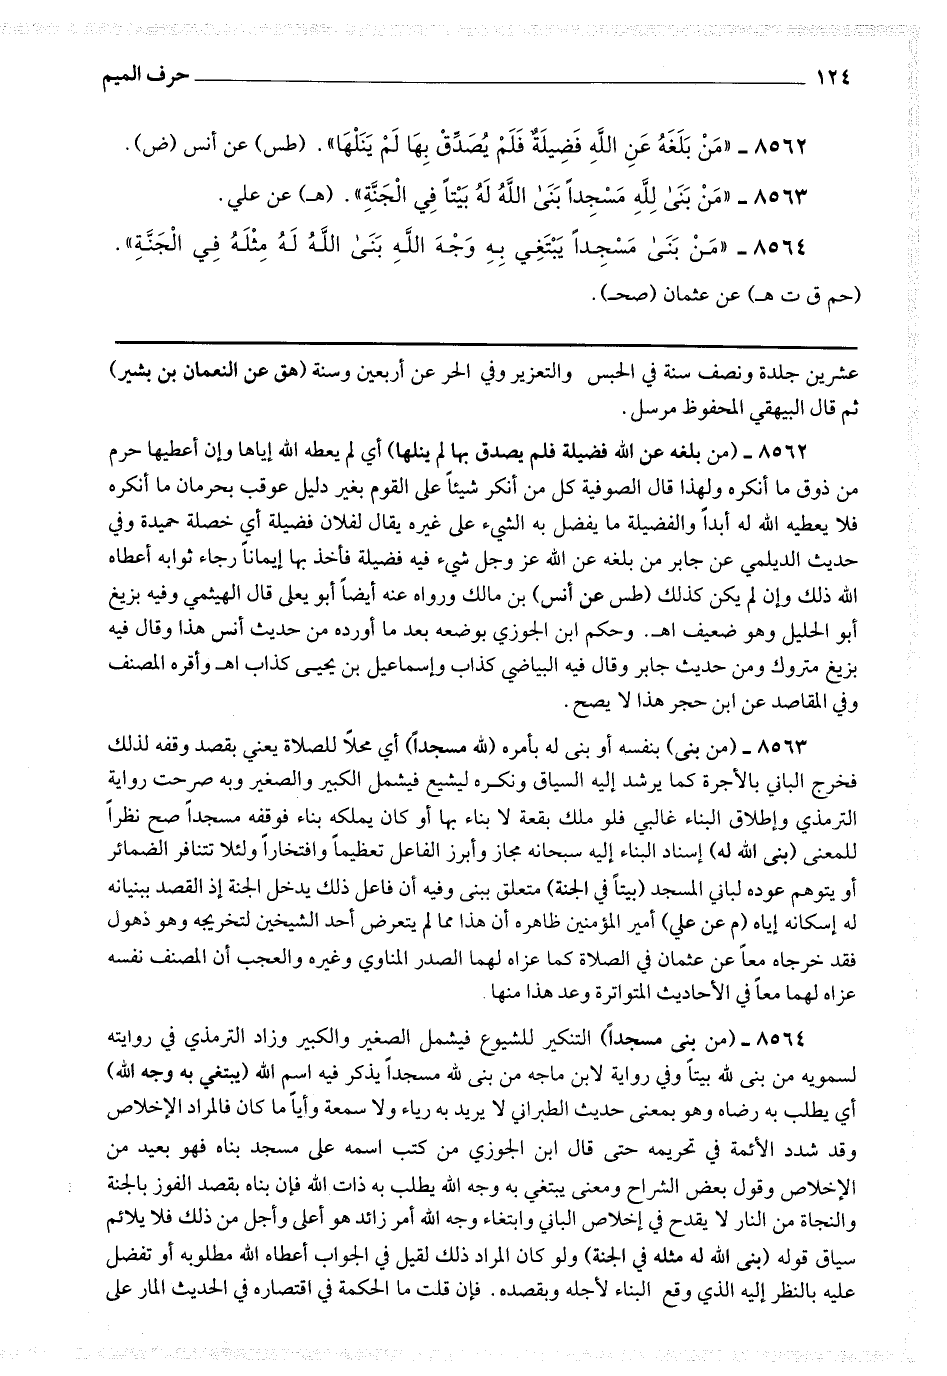 ١٢٤ حرف الميم
٨٥٦٢ ـ «مَنْ بَلَغَهُ عَنِ اللَّهِ فَضِيلَةٌ فَلَمْ يُصَدِّقْ بِهَا لَمْ يَنَلْهَا». (طس) عن أنس (ض).
٨٥٦٣ ـ «مَنْ بَنَىٰ لِلَّهِ مَسْجِداً بَنَىٰ اللَّهُ لَهُ بَيْتاً فِي الْجَنَّةِ». (هـ) عن علي.
٨٥٦٤ ـ «مَـنْ بَنَـىٰ مَسْجِـداً يَبْتَغِـي بِـهِ وَجْـهَ اللَّـهِ بَنَـىٰ اللَّـهُ لَـهُ مِثْلَـهُ فِـي الْجَنَّـةِ».
(حم ق ت هـ) عن عثمان (صحـ).
عشرين جلدة ونصف سنة في الحبس والتعزير وفي الحر عن أربعين وسنة (هق عن النعمان بن بشير)
ثم قال البيهقي المحفوظ مرسل.
٨٥٦٢ ـ (من بلغه عن الله فضيلة فلم يصدق بها لم ينلها) أي لم يعطه الله إياها وإن أعطيها حرم
من ذوق ما أنكره ولهذا قال الصوفية كل من أنكر شيئاً على القوم بغير دليل عوقب بحرمان ما أنكره
فلا يعطيه الله له أبداً والفضيلة ما يفضل به الشيء على غيره يقال لفلان فضيلة أي خصلة حميدة وفي
حديث الديلمي عن جابر من بلغه عن الله عز وجل شيء فيه فضيلة فأخذ بها إيماناً رجاء ثوابه أعطاه
الله ذلك وإن لم يكن كذلك (طس عن أنس) بن مالك ورواه عنه أيضاً أبو يعلى قال الهيثمي وفيه بزيغ
أبو الخليل وهو ضعيف اهـ. وحكم ابن الجوزي بوضعه بعد ما أورده من حديث أنس هذا وقال فيه
بزيغ متروك ومن حديث جابر وقال فيه البياضي كذاب وإسماعيل بن يحيـى كذاب اهـ وأقره المصنف
وفي المقاصد عن ابن حجر هذا لا يصح.
٨٥٦٣ ـ (من بنى) بنفسه أو بنى له بأمره (لله مسجداً) أي محلاً للصلاة يعني بقصد وقفه لذلك
فخرج الباني بالأجرة كما يرشد إليه السياق ونكـره ليشيع فيشمل الكبير والصغير وبه صرحت رواية
الترمذي وإطلاق البناء غالبي فلو ملك بقعة لا بناء بها أو كان يملكه بناء فوقفه مسجداً صح نظراً
للمعنى (بنى الله له) إسناد البناء إليه سبحانه مجاز وأبرز الفاعل تعظيماً وافتخاراً ولئلا تتنافر الضمائر
أو يتوهم عوده لباني المسجد (بيتاً في الجنة) متعلق ببنى وفيه أن فاعل ذلك يدخل الجنة إذ القصد ببنيانه
له إسكانه إياه (م عن علي) أمير المؤمنين ظاهره أن هذا مما لم يتعرض أحد الشيخين لتخريجه وهو ذهول
فقد خرجاه معاً عن عثمان في الصلاة كما عزاه لهما الصدر المناوي وغيره والعجب أن المصنف نفسه
عزاه لهما معاً في الأحاديث المتواترة وعد هذا منها.
٨٥٦٤ ـ (من بنى مسجداً) التنكير للشيوع فيشمل الصغير والكبير وزاد الترمذي في روايته
لسمويه من بنى لله بيتاً وفي رواية لابن ماجه من بنى لله مسجداً يذكر فيه اسم الله (يبتغي به وجه الله)
أي يطلب به رضاه وهو بمعنى حديث الطبراني لا يريد به رياء ولا سمعة وأياً ما كان فالمراد الإخلاص
وقد شدد الأئمة في تحريمه حتى قال ابن الجوزي من كتب اسمه على مسجد بناه فهو بعيد من
الإخلاص وقول بعض الشراح ومعنى يبتغي به وجه الله يطلب به ذات الله فإن بناه بقصد الفوز بالجنة
والنجاة من النار لا يقدح في إخلاص الباني وابتغاء وجه الله أمر زائد هو أعلى وأجل من ذلك فلا يلائم
سياق قوله (بنى الله له مثله في الجنة) ولو كان المراد ذلك لقيل في الجواب أعطاه الله مطلوبه أو تفضل
عليه بالنظر إليه الذي وقع البناء لأجله وبقصده. فإن قلت ما الحكمة في اقتصاره في الحديث المار على